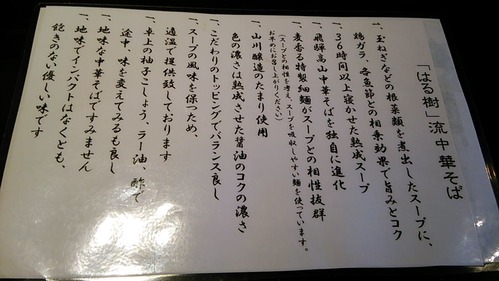 「はる樹」流中華そば
一、玉ねぎなどの根菜類を煮出したスープに、
鶏ガラ、各魚節との相乗効果で旨みとコク
一、36時間以上寝かせた熟成スープ
一、飛騨高山中華そばを独自に進化
一、麦香る特製細麺がスープとの相性抜群
(スープとの相性を考え、スープを吸収しやすい麺を使っています。
お早めにお召し上がりください)
一、山川醸造のたまり使用
色の濃さは熟成させた醤油のコクの濃さ
一、こだわりのトッピングで、バランス良し
一、スープの風味を保つため、
適温で提供致しております
一、卓上の柚子こしょう、ラー油、酢で
途中、味を変えてみるも良し
一、地味な中華そばですみません
一、地味でインパクトはなくとも、
飽きのない優しい味です